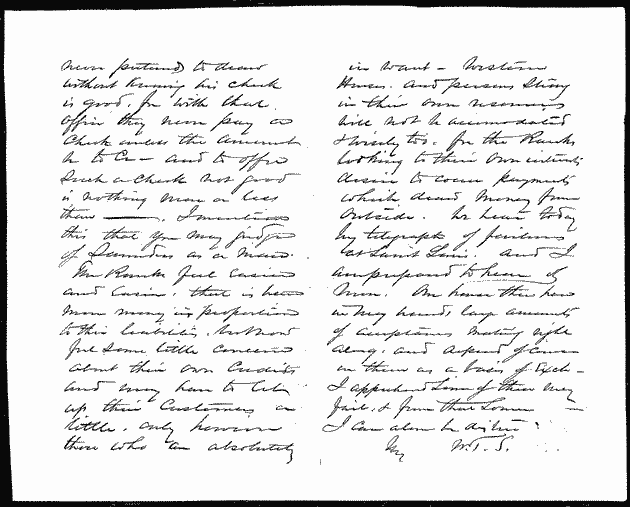 never pretend to draw
without knowing his check
is good. for with that
office they never pay a
check unless the amount
be to Cr - and to offer
such a check not good
is nothing more or less
than ———. I mention
this that you may judge
of Saunders as a man.
The Banks feel easier
and easier. that is have
more money in proportion
to their liabilities. but most
feel some little concern
about their own Credits
and may have to
up their Customers a
little. only however
those who are absolutely
in want - Western
Houses. and persons strong
in their own resources
will not be accommodated
too. for the Banks
looking to their own interests
desire to cover payments
which draw money from
outside. We hear today
by telegraph of failures
at Saint Louis. and I
am prepared to hear of
more. One house there have
in my hands large amounts
of acceptances maturing right
along. and depend of course
on them as a basis of Exch -
I apprehend some of them may
fail, & from that source
I can alone be
W.T.S.